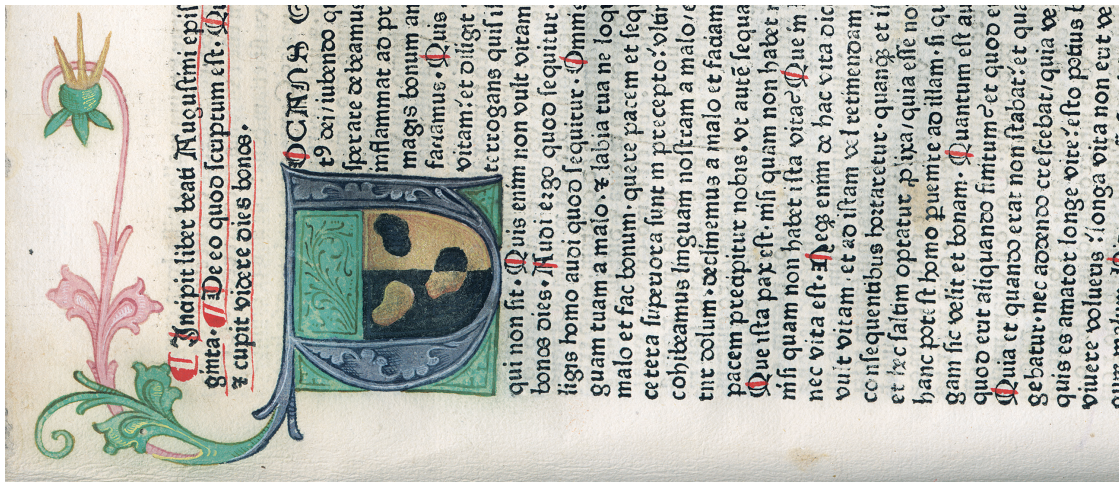 Incipit liber beati Augustini epis
ginta. De eo quod scriptum est. Qu
⁊ cupit videre dies bonos.
OCANS
t9 dei/iubendo qu
sperare debeamus
inflammat ad pr
magis bonum am
faciamus. Quis
vitam: et diligit
terrogans quasi i
qui non sit. Quis enim non vult vitam
bonos dies. Audi ergo quod sequitur.
ligis homo audi quod sequitur. Omnis
guam tuam a malo. ⁊ labia tua ne loqu
malo et fac bonum. quere pacem et sequ
cetera superiora sunt in precepto: vltim
cohibeamus linguam nostram a malo/e
tur dolum. declinemus a malo et faciam
pacem precipitur nobis. vt autē sequa
Que ista pax est. nisi quam non habet
nisi quam non habet ista vita? Que in
nec vita est. Neqꝫ enim de hac vita dic
vult vitam. et ad istam vel retinendam
consequentibus hortaretur. quāqꝫ et i
et hec saltim optatur pixa/quia esse no
hanc potest homo puenire ad illam si qu
gam sic velit et bonam. Quantum est au
quod erit aliquando finitum? et quod e
Quia et quando erat non stabat: et qua
gebatur. nec addendo crescebat/qua ve
quis es amator longe vite: esto potius b
viuere volueris: longa vita non erit ve